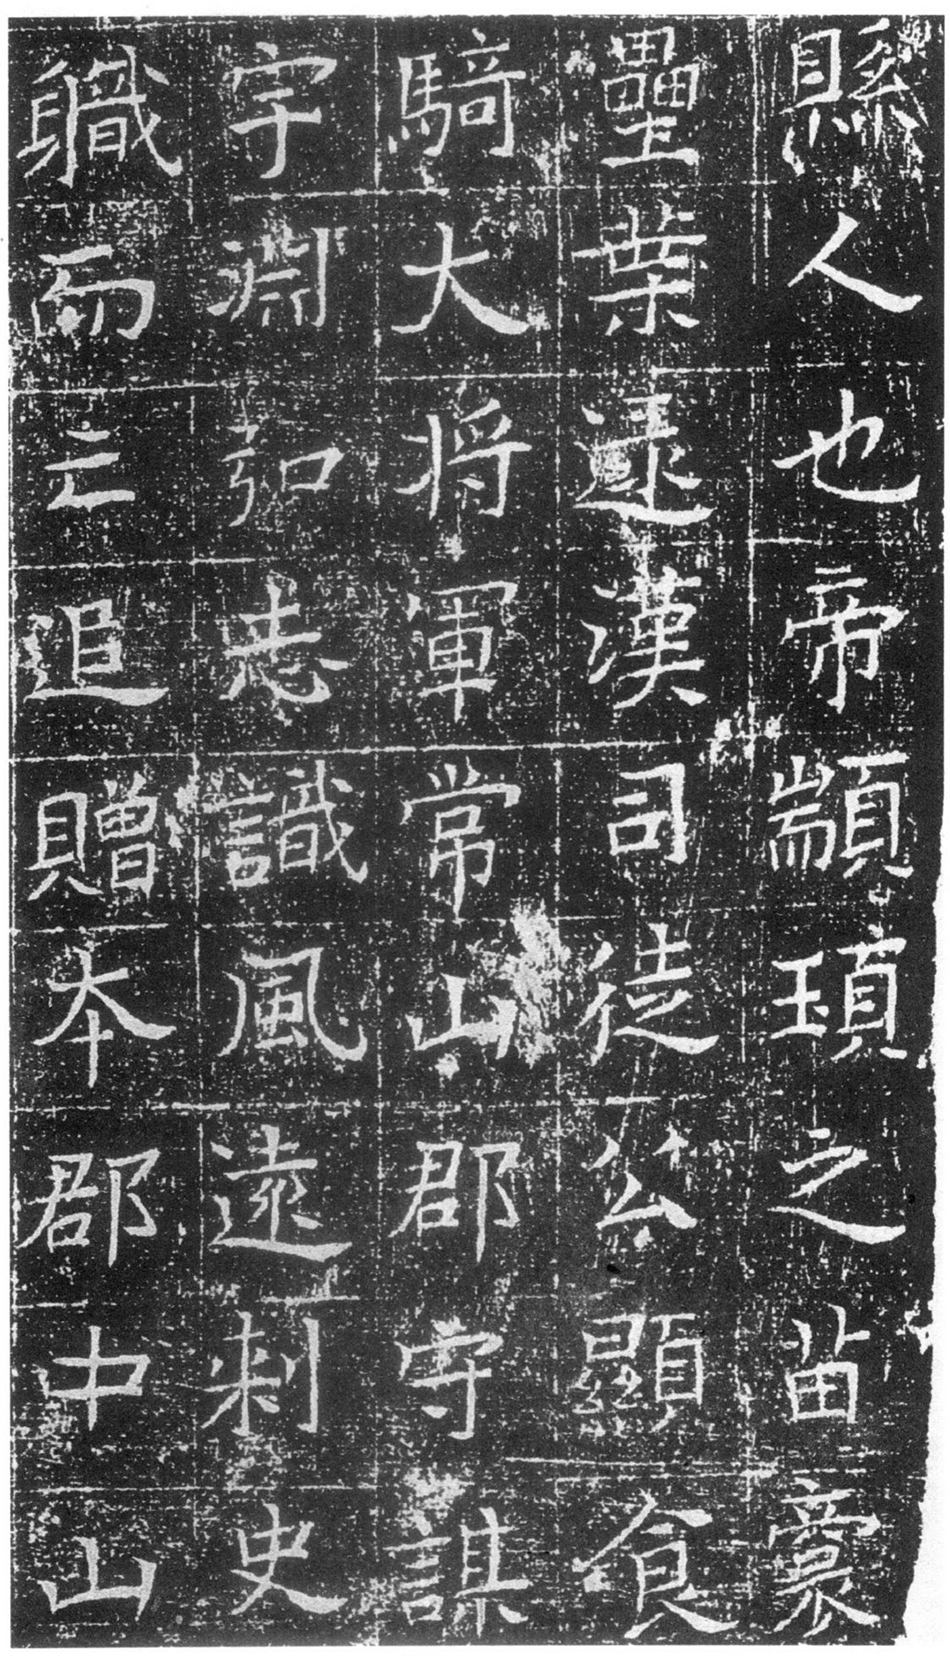 縣人也帝顓頊之苗裔
壘葉逮漢司徒公顯食
騎大将軍常山郡守謀
字淵弘志識風遠刺史
職而亡追贈本郡中山